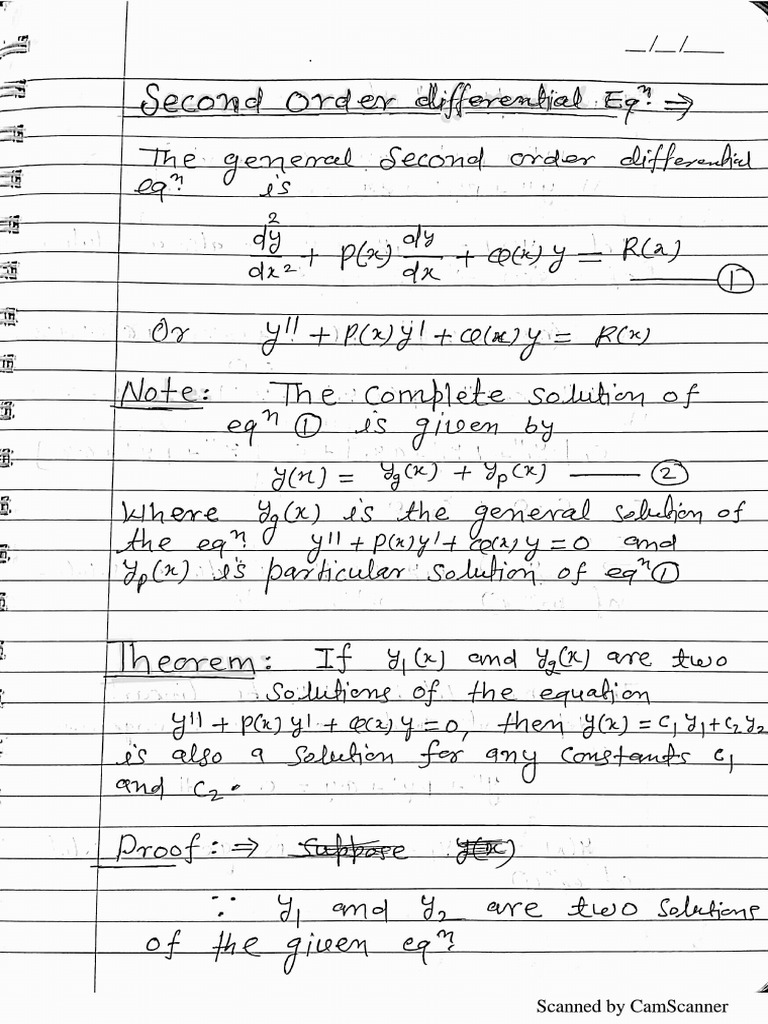 _/_/__
Second Order differential Eqⁿ. ⇒
The general Second order differential
eqⁿ. is
d²y/dx² + P(x) dy/dx + Q(x) y = R(x) —— ①
Or y'' + P(x) y' + Q(x) y = R(x)
Note: The complete solution of
eqⁿ ① is given by
y(x) = yg(x) + yp(x) —— ②
Where yg(x) is the general solution of
the eqⁿ. y'' + P(x) y' + Q(x) y = 0 and
yp(x) is particular solution of eqⁿ ①
Theorem: If y₁(x) and y₂(x) are two
solutions of the equation
y'' + P(x) y' + Q(x) y = 0, then y(x) = c₁ y₁ + c₂ y₂
is also a solution for any constants c₁
and c₂.
Proof: ⇒ Suppose y(x)
∵ y₁ and y₂ are two solutions
of the given eqⁿ.
Scanned by CamScanner